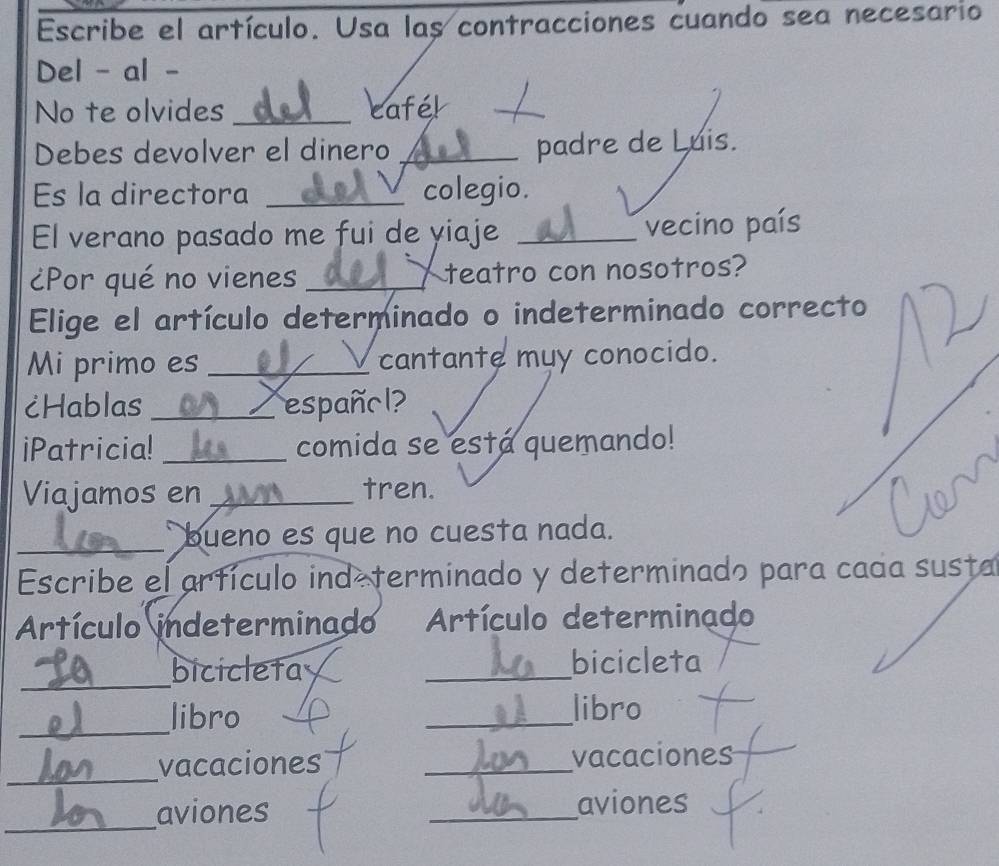 Escribe el artículo. Usa las contracciones cuando sea necesario
Del - al -
No te olvides del café
Debes devolver el dinero del padre de Luis.
Es la directora del colegio.
El verano pasado me fui de viaje al vecino país
¿Por qué no vienes del teatro con nosotros?
Elige el artículo determinado o indeterminado correcto
Mi primo es el cantante muy conocido.
¿Hablas en español?
¡Patricia! la comida se está quemando!
Viajamos en un tren.
bueno es que no cuesta nada.
Escribe el artículo indeterminado y determinado para cada susta
Artículo indeterminado Artículo determinado
la bicicleta la bicicleta
el libro el libro
las vacaciones las vacaciones
los aviones aviones
12